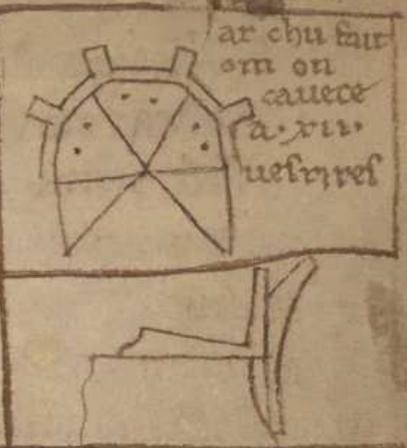 ar chu fait
om on
cavece
a · xii ·
vesrires